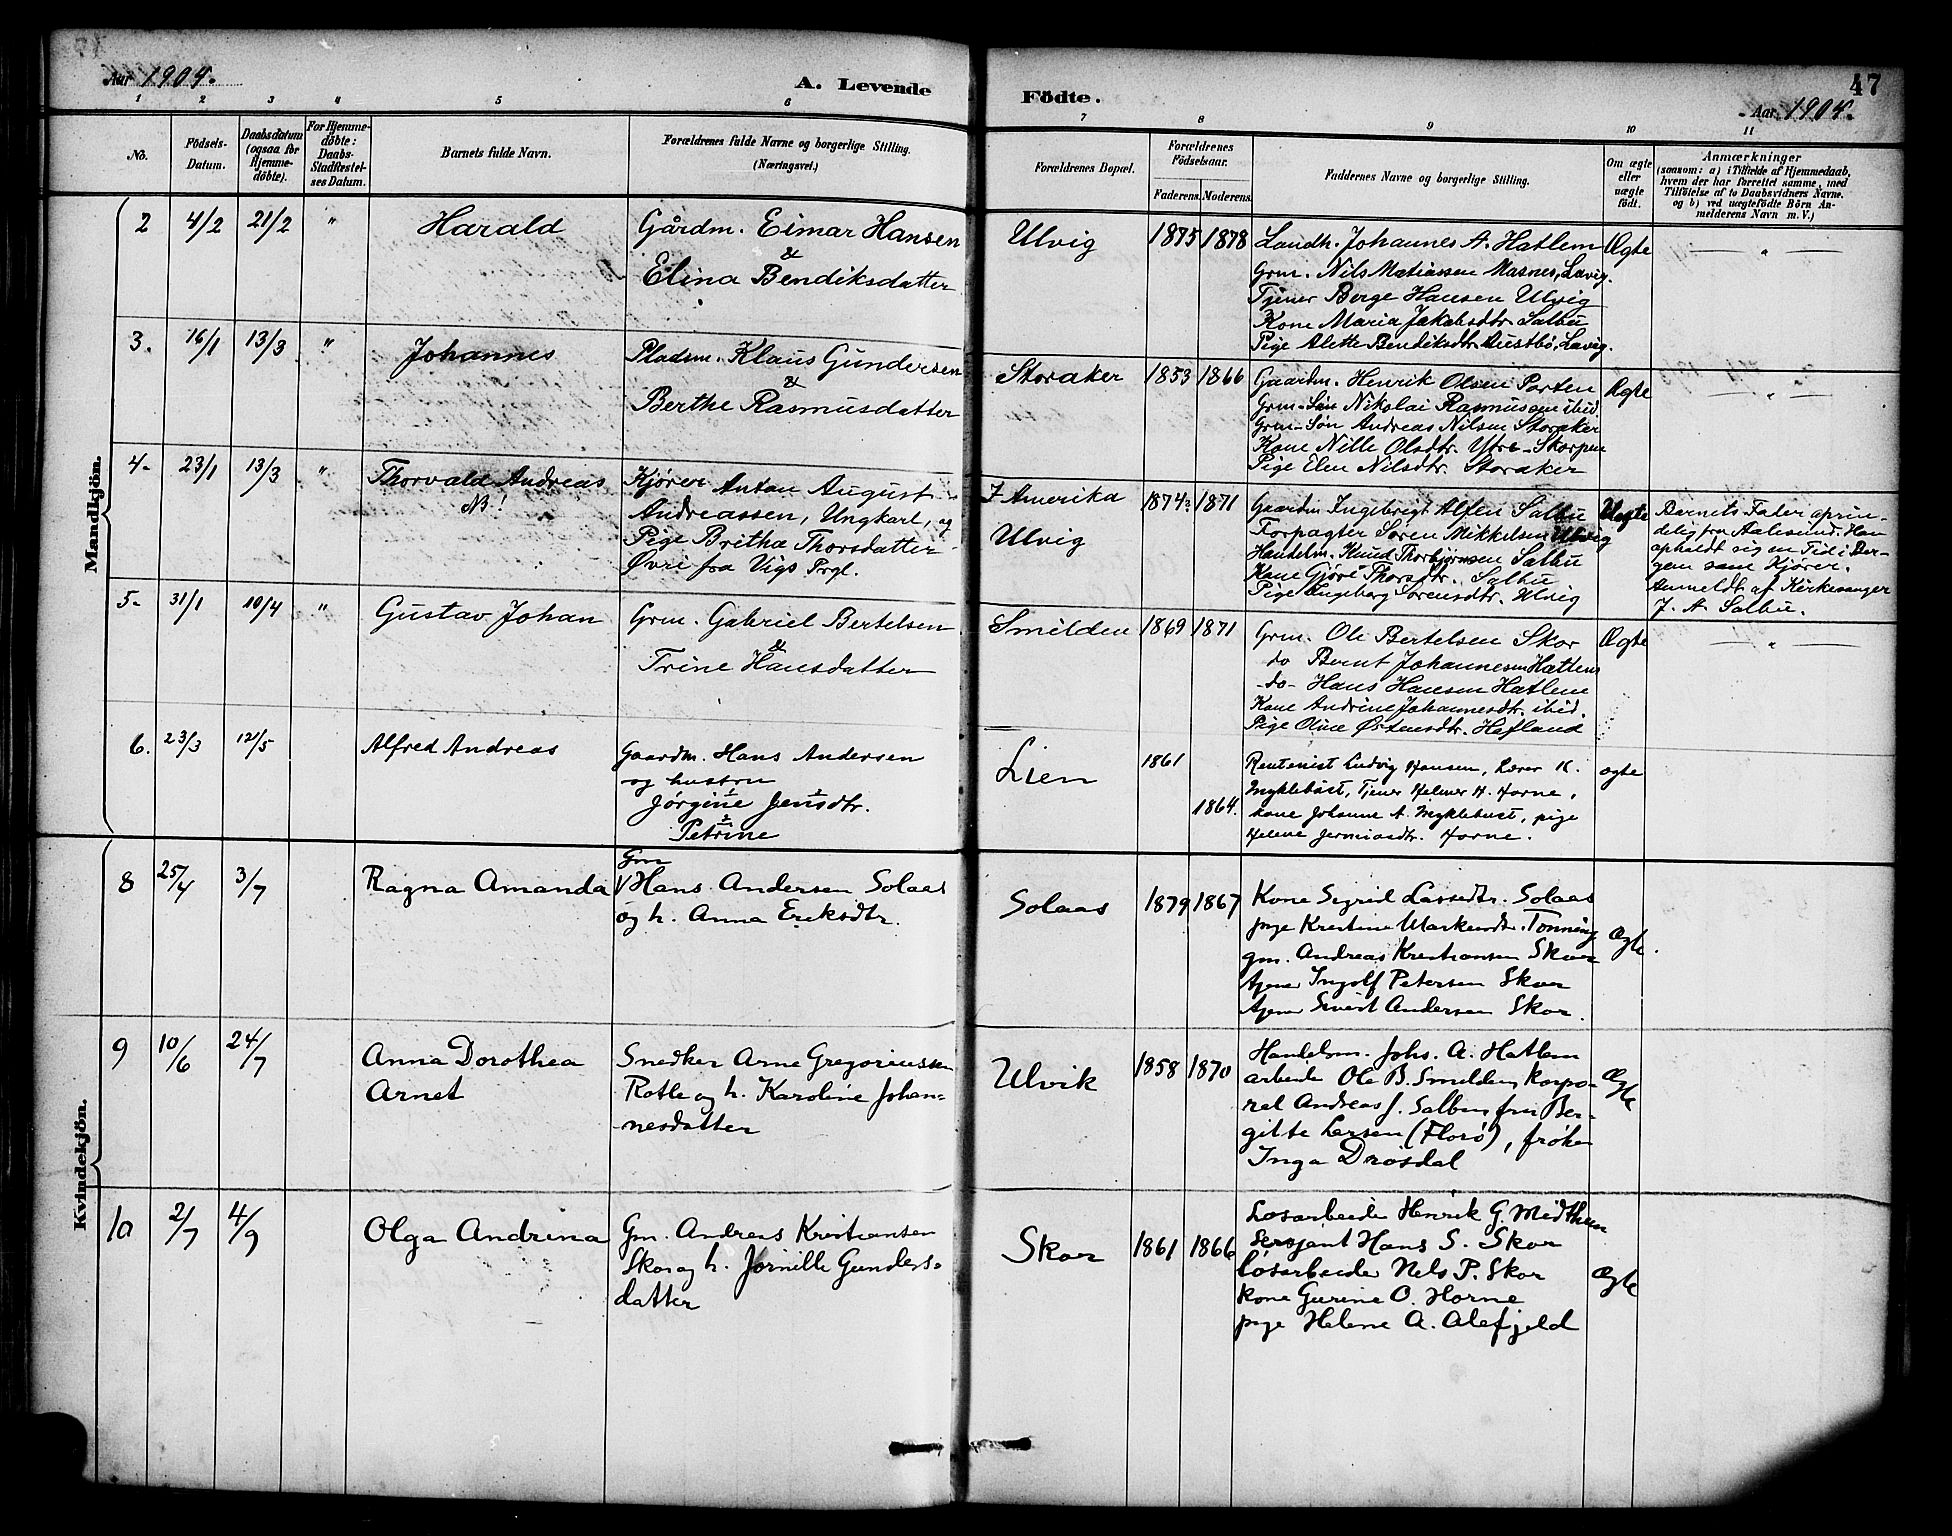 Aar 1904.
A. Levende
1 2 3 4 5 6
No.
Födsels-
Datum.
Daabsdatum
(ogsaa for
Hjemme-
döbte).
For Hjemme-
döbte:
Daabs-
Stadfæstel-
ses Datum.
Barnets fulde Navn.
Forældrenes fulde Navne og borgerlige Stilling.
(Næringsvei.)
Mandkjön.
2 4/2 21/2 " Harald
Gårdm. Eimar Hansen
&
Elina Bendiksdatter
3. 16/1 13/3 " Johannes
Pladsm. Klaus Gundersen
&
Berthe Rasmusdatter
4- 23/1 13/3 " Thorvald Andreas
NB!
Kjører Anton August
Andreassen, Ungkarl, og
Pige Brithe Thorsdatter
Øvri fra Vigs Prgl.
5- 31/1 10/4 " Gustav Johan
Grm. Gabriel Bertelsen
&
Trine Hansdatter
6. 23/3 12/5 Alfred Andreas
Gaardm. Hans Andersen
og hustru
Jørgine Jensdtr.
Petrine
Kvindekjön.
8 25/4 3/7 Ragna Amanda
Gm
Hans Andersen Solaas
og h. Anna Eriksdtr.
9 10/6 24/7 Anna Dorothea
Arnet
Snedker Arne Gregoriussen
Rotle og h. Karoline Johan-
nesdatter
10 2/7 4/9 Olga Andrina
Gm. Andreas Kristiansen
Skor og h. Jørnille Gunders-
datter
47
Födte.
Aar 1904.
7 8 9 10 11
Forældrenes Bopæl.
Forældrenes
Födselsaar.
Faderens. Moderens.
Faddernes Navne og borgerlige Stilling.
Om ægte
eller
uægte
födt.
Anmærkninger
(saasom: a) i Tilfælde af Hjemmedaab,
hvem der har forrettet samme, med
Tilföielse af to Daabsvidners Navne.
og b) ved uægtefödte Börn An-
melderens Navn m. V.)
Ulvig 1875 1878
Landh. Johannes A. Hatlem
Grm. Nils Matiassen Masnes, Lavig.
Tjener Berge Hansen Ulvig
Kone Maria Jakobsdtr. Salbu
Pige Alette Bendiksdtr. Austbö, Lavig.
Ægte — " —
Storaker 1853 1866
Gaardm. Henrik Olsen Porten
Grm-Søn Nikolai Rasmussen ibid
Grm-Søn Andreas Nilsen Storaker
Kone Nille Olsdtr. Ytre-Skorpen
Pige Elen Nilsdtr. Storaker
Ægte — " —
I Amerika
Ulvig
1874? 1871
Gaardm Ingebrigt Alfsen Salbu
Forpagter Søren Mikkelsen Ulvig
Handelm. Knud Thorbjørnsen Salbu
Kone Gjøre Thorsdtr. Salbu
Pige Ingeborg Sørensdtr. Ulvig
Uægte
Barnets Fader oprin-
delig fra Aalesund. Han
opholdt sig en Tid i Ber-
gen som Kjører.
Anmeldt af Kirkesanger
J. A. Salbu.
Smilden 1869 1871
Grm. Ole Bertelsen Skor
do Bernt Johannesen Hatlem
-do- Hans Hansen Hatlem
Kone Andrine Johannesdtr. ibid.
Pige Oline Østensdtr. Hefland
Ægte — " —
Lien 1861
1864.
Rentenist Ludvig Hansen, Lærer K.
Myklebust, Tjener Helmer H. Horne,
kone Johanne A. Myklebust, pige
Helene Jermiasdtr. Horne.
ægte
Solaas 1879 1867
Kone Sigrid Lassedtr. Solaas
pige Kristine Markusdtr. Tonning
gm. Andreas Kristiansen Skor
tjener Ingolf Petersen Skor
tjener Sivert Andersen Skor.
Ægte.
Ulvik 1858 1870
Handelsm. Johs. A. Hatlem
arbeider Ole B. Smelden, korpo-
ral Andreas J. Salbu, fru Ber-
gitte Larsen (Florø), frøken
Inga Drøsdal
Ægte
Skor 1861 1866
Løsarbeider Henrik G. Midthun
Sersjant Hans S. Skor
Løsarbeider Nels P. Skor
kone Gurine O. Horne
pige Helene A. Alefjeld
Ægte